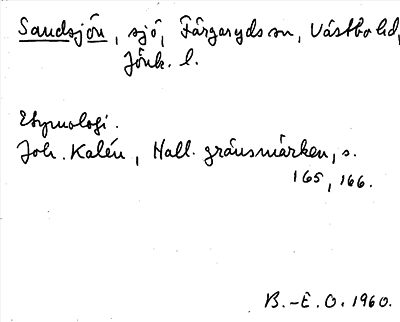 Sandsjön, sjö, Färgaryds sn, Västbo hd,
Jönk. l.
Etymologi.
Joh. Kalén, Hall. gränsmärken, s.
165, 166.
B.-E. O. 1960.